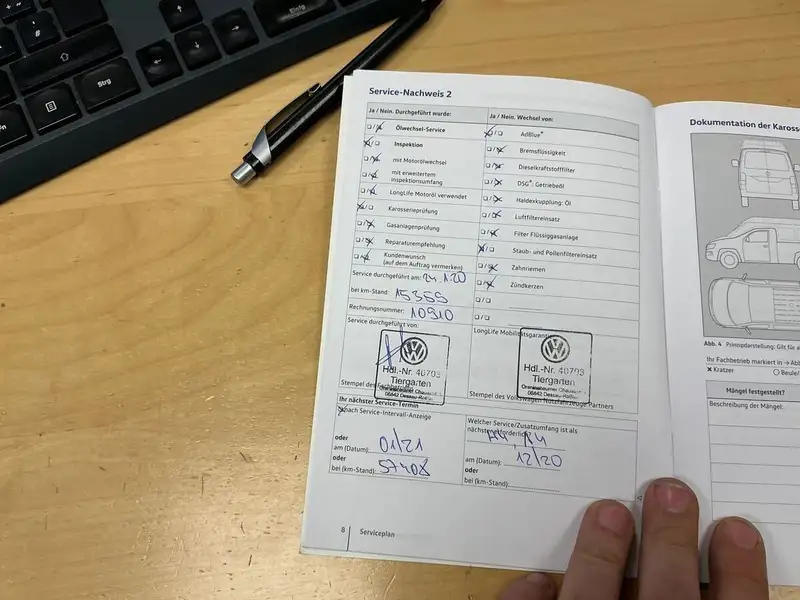 Strg
Service-Nachweis 2
Ja / Nein. Durchgeführt wurde:
Ölwechsel-Service
Inspektion
mit Motorölwechsel
mit erweitertem
Inspektionsumfang
LongLife Motoröl verwendet
Karosserieprüfung
Gasanlagenprüfung
Reparaturempfehlung
Kundenwunsch
(auf dem Auftrag vermerken)
Service durchgeführt am: 24.1.20
bei km-Stand: 15355
Rechnungsnummer: 10910
Service durchgeführt von:
Hdl.-Nr. 40793
Tiergarten
06842 Dessau-Roßlau
Stempel des Fachbetriebs
Ja / Nein. Wechsel von:
AdBlue®
Bremsflüssigkeit
Dieselkraftstofffilter
DSG®: Getriebeöl
Haldexkupplung: Öl
Luftfiltereinsatz
Filter Flüssiggasanlage
Staub- und Pollenfiltereinsatz
Zahnriemen
Zündkerzen
LongLife Mobilitätsgarantie
Hdl.-Nr. 40793
Tiergarten
06842 Dessau-Roßlau
Stempel des Volkswagen Nutzfahrzeuge Partners
Ihr nächster Service-Termin
nach Service-Intervall-Anzeige
oder
am (Datum): 01/21
oder
bei (km-Stand): 57408
Welcher Service/Zusatzumfang ist als
nächstes erforderlich?
am (Datum): 12/20
oder
bei (km-Stand):
8 Serviceplan
Dokumentation der Karosse
Abb. 4 Prinzipdarstellung: Gilt für a
Ihr Fachbetrieb markiert in → Ab
x Kratzer O Beule/
Mängel festgestellt?
Beschreibung der Mängel: